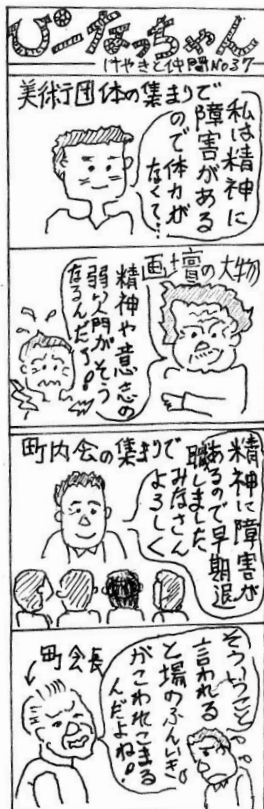 ぴーなっちゃん
けやきと仲間No37
美術団体の集まりで
私は精神に
障害がある
ので体力が
なくて…
画壇の大物
精神や意志の
弱い人間がそう
なるんだよ!
町内会の集まりで
精神に障害が
あるので早期退
職しました
みなさん
よろしく
町会長
そういうこと
言われる
と場のふんいき
がこわれこまる
んだよね!